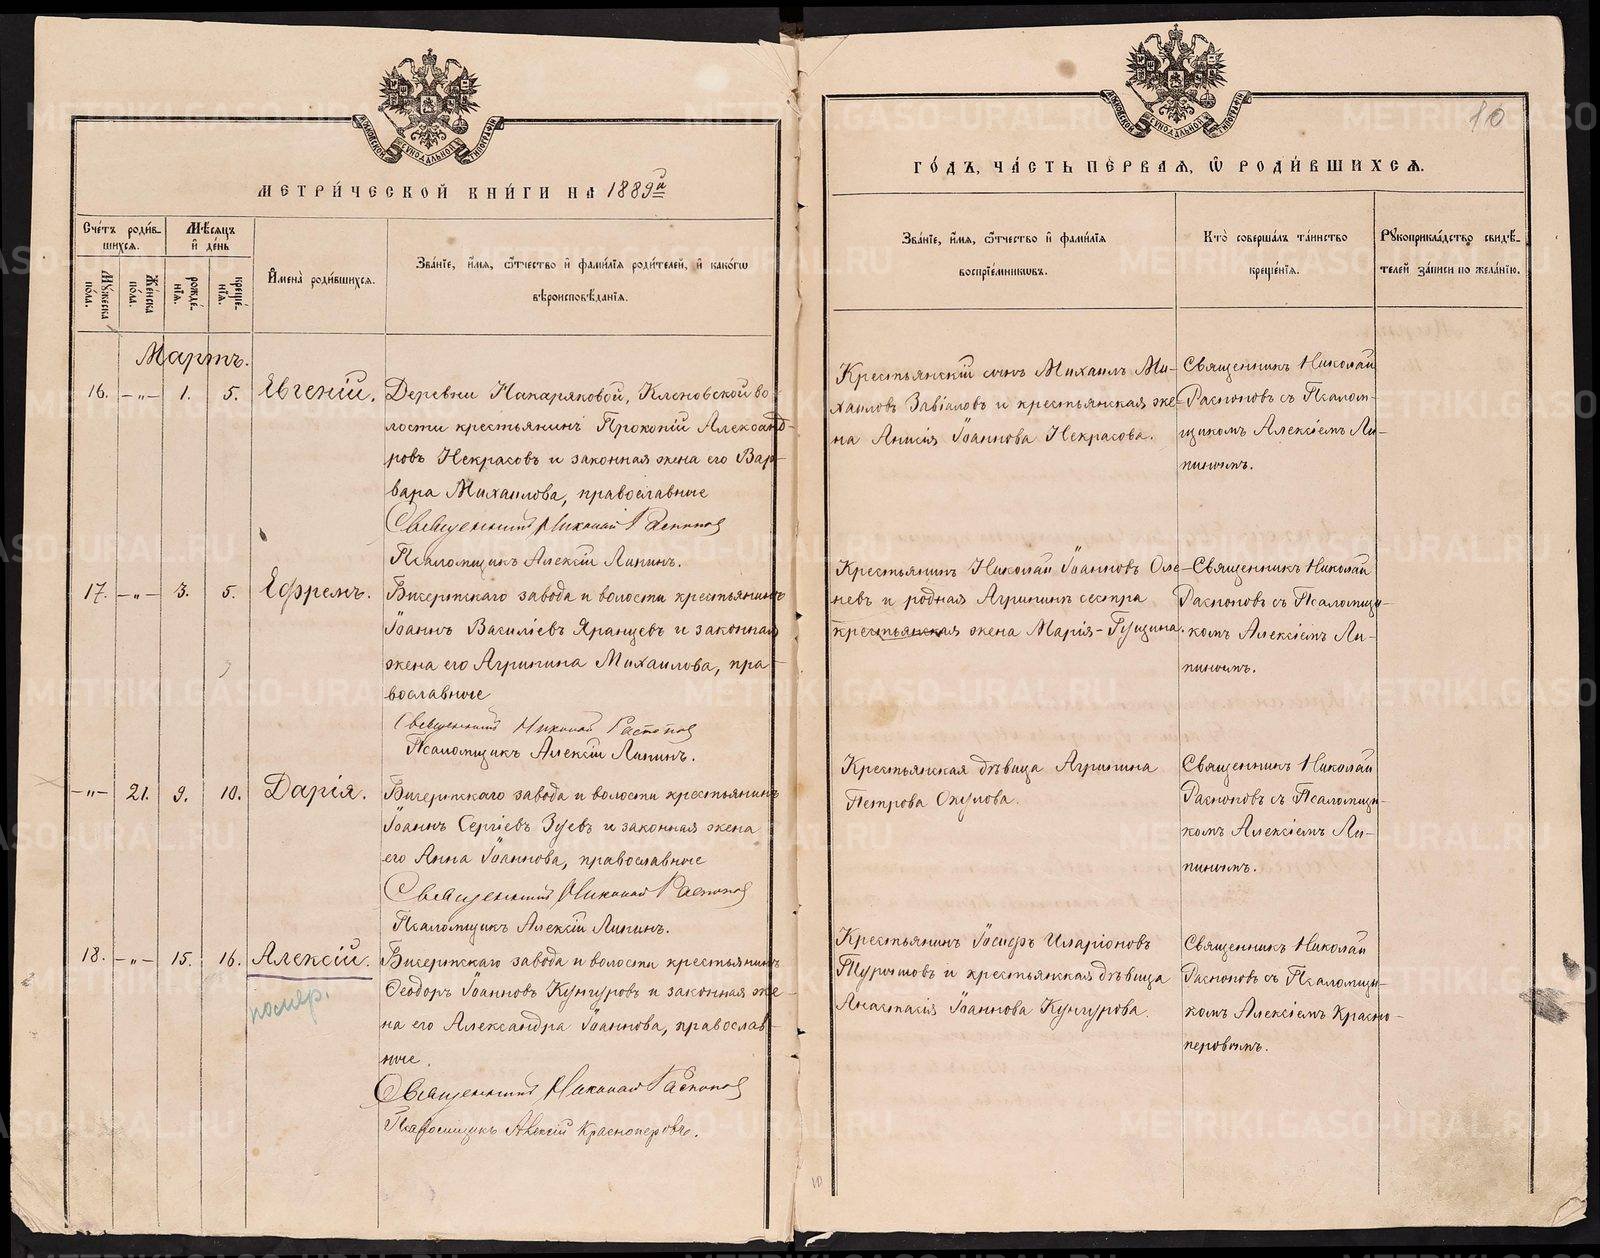 МЕТРИ́ЧЕСКОЙ КНИ́ГИ НА 1889й
Сче́тъ роди́в-
шихся.
Мѣ́сяцъ
и҆ де́нь
Мꙋ́жеска
по́ла.
Же́нска
по́ла.
рожде́-
нїя.
креще́-
нїя.
И҆мена̀ роди́вшихся.
Зва́нїе, и҆́мя, ѻ҆́тчество и҆ фами́лїя роди́телей, и҆ како́гѡ
вѣроисповѣ́данїя.
Мартъ.
16. –"– 1. 5. Евгеній. Деревни Накаряковой, Кленовской во-
лости крестьянинъ Прокопій Александ-
ровъ Некрасовъ и законная жена его Вар-
вара Михаилова, православные
Священникъ Николай Распоповъ
Псаломщикъ Алексій Липинъ.
17. –"– 3. 5. Ефремъ. Бисертскаго завода и волости крестьянинъ
Іоаннъ Василіевъ Яранцевъ и законная
жена его Агрипина Михаилова, пра-
вославные
Священникъ Николай Распоповъ
Псаломщикъ Алексій Липинъ.
–"– 21. 9. 10. Дарія. Бисертскаго завода и волости крестьянинъ
Іоаннъ Сергіевъ Зуевъ и законная жена
его Анна Іоаннова, православные
Священникъ Николай Распоповъ
Псаломщикъ Алексій Липинъ.
18. –"– 15. 16. Алексій. Бисертскаго завода и волости крестьянинъ
помер. Ѳеодоръ Іоанновъ Кунгуровъ и законная же-
на его Александра Іоаннова, православ-
ные.
Священникъ Николай Распоповъ
Псаломщикъ Алексій Красноперовъ.
10
ГО́ДЪ, ЧА́СТЬ ПЕ́РВАЯ, Ѡ҆ РОДИ́ВШИХСЯ.
Зва́нїе, и҆́мя, ѻ҆́тчество и҆ фами́лїя
воспрїе́мниковъ.
Кто̀ соверша́лъ та́инство
креще́нїя.
Рꙋкоприкла́дство свидѣ́-
телей за́писи по жела́нїю.
Крестьянскій сынъ Михаилъ Ми-
хаиловъ Завіаловъ и крестьянская же-
на Анисія Іоаннова Некрасова.
Священникъ Николай
Распоповъ съ Псалом-
щикомъ Алексіемъ Ли-
пинымъ.
Крестьянинъ Николай Іоанновъ Оле-
невъ и родная Агрипинѣ сестра
крестьянская жена Марія Гущина.
Священникъ Николай
Распоповъ съ Псаломщи-
комъ Алексіемъ Ли-
пинымъ.
Крестьянская дѣвица Агрипина
Петрова Окулова.
Священникъ Николай
Распоповъ съ Псаломщи-
комъ Алексіемъ Ли-
пинымъ.
Крестьянинъ Іосифъ Иларіоновъ
и крестьянская дѣвица
Анастасія Іоаннова Кунгурова.
Священникъ Николай
Распоповъ съ Псаломщи-
комъ Алексіемъ Красно-
перовымъ.
METRIKI.GASO-URAL.RU